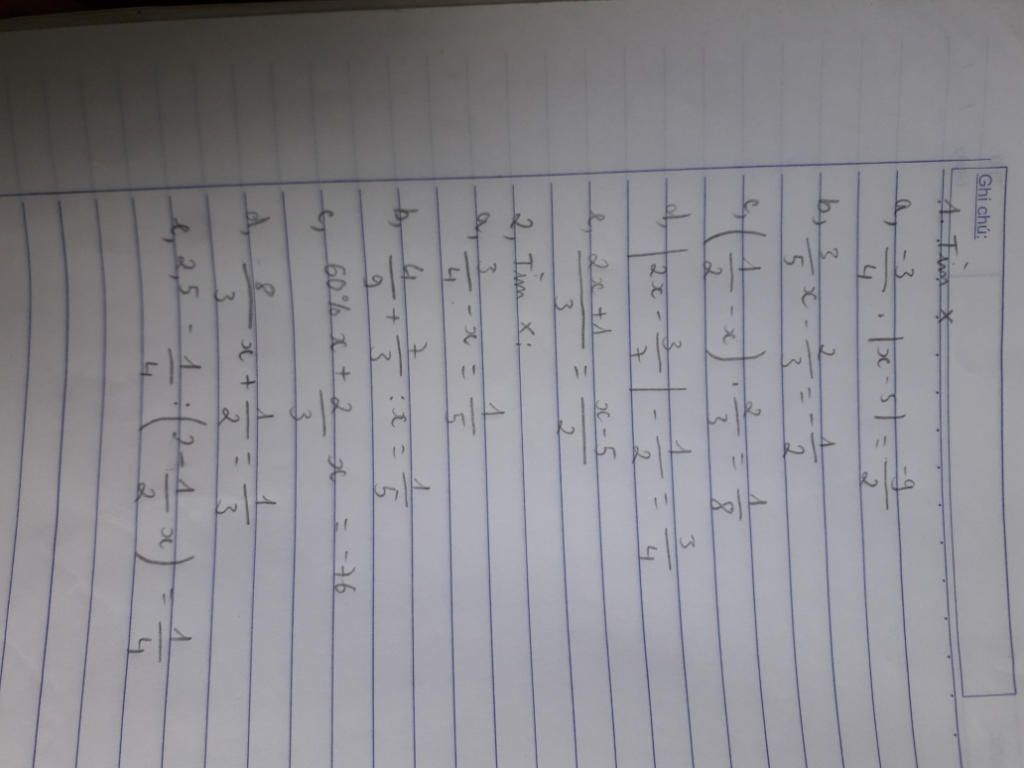 Ghi chú:
1. Tìm x
a, -3/4 . |x - 3| = -9/2
b, 3/5 x - 2/3 = -1/2
c, (1/2 - x) . 2/3 = 1/8
d, |2x - 3/7| - 1/2 = 3/4
e, 2x+1/3 = x-5/2
2, Tìm x:
a, 3/4 - x = 1/5
b, 4/9 + 7/3 : x = 1/5
c, 60% x + 2/3 x = -76
d, 8/3 x + 1/2 = 1/3
e, 2,5 - 1/4 : (2 - 1/2 x) = 1/4